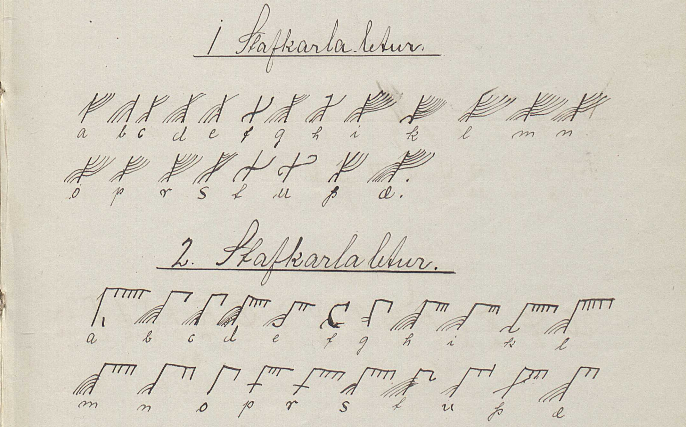 1 Stafkarla letur.
a b c d e f g h i k l m n
o p r s t u þ æ.
2. Stafkarla letur.
a b c d e f g h i k l
m n o p r s t u þ æ